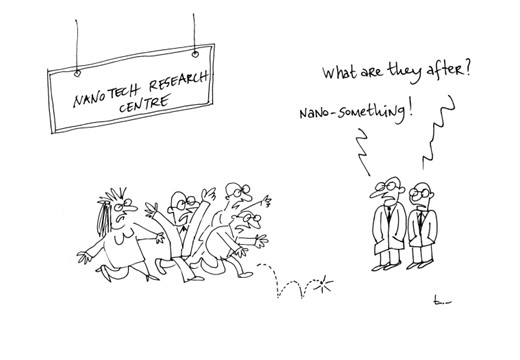 NANOTECH RESEARCH
CENTRE
What are they after?
Nano-something!